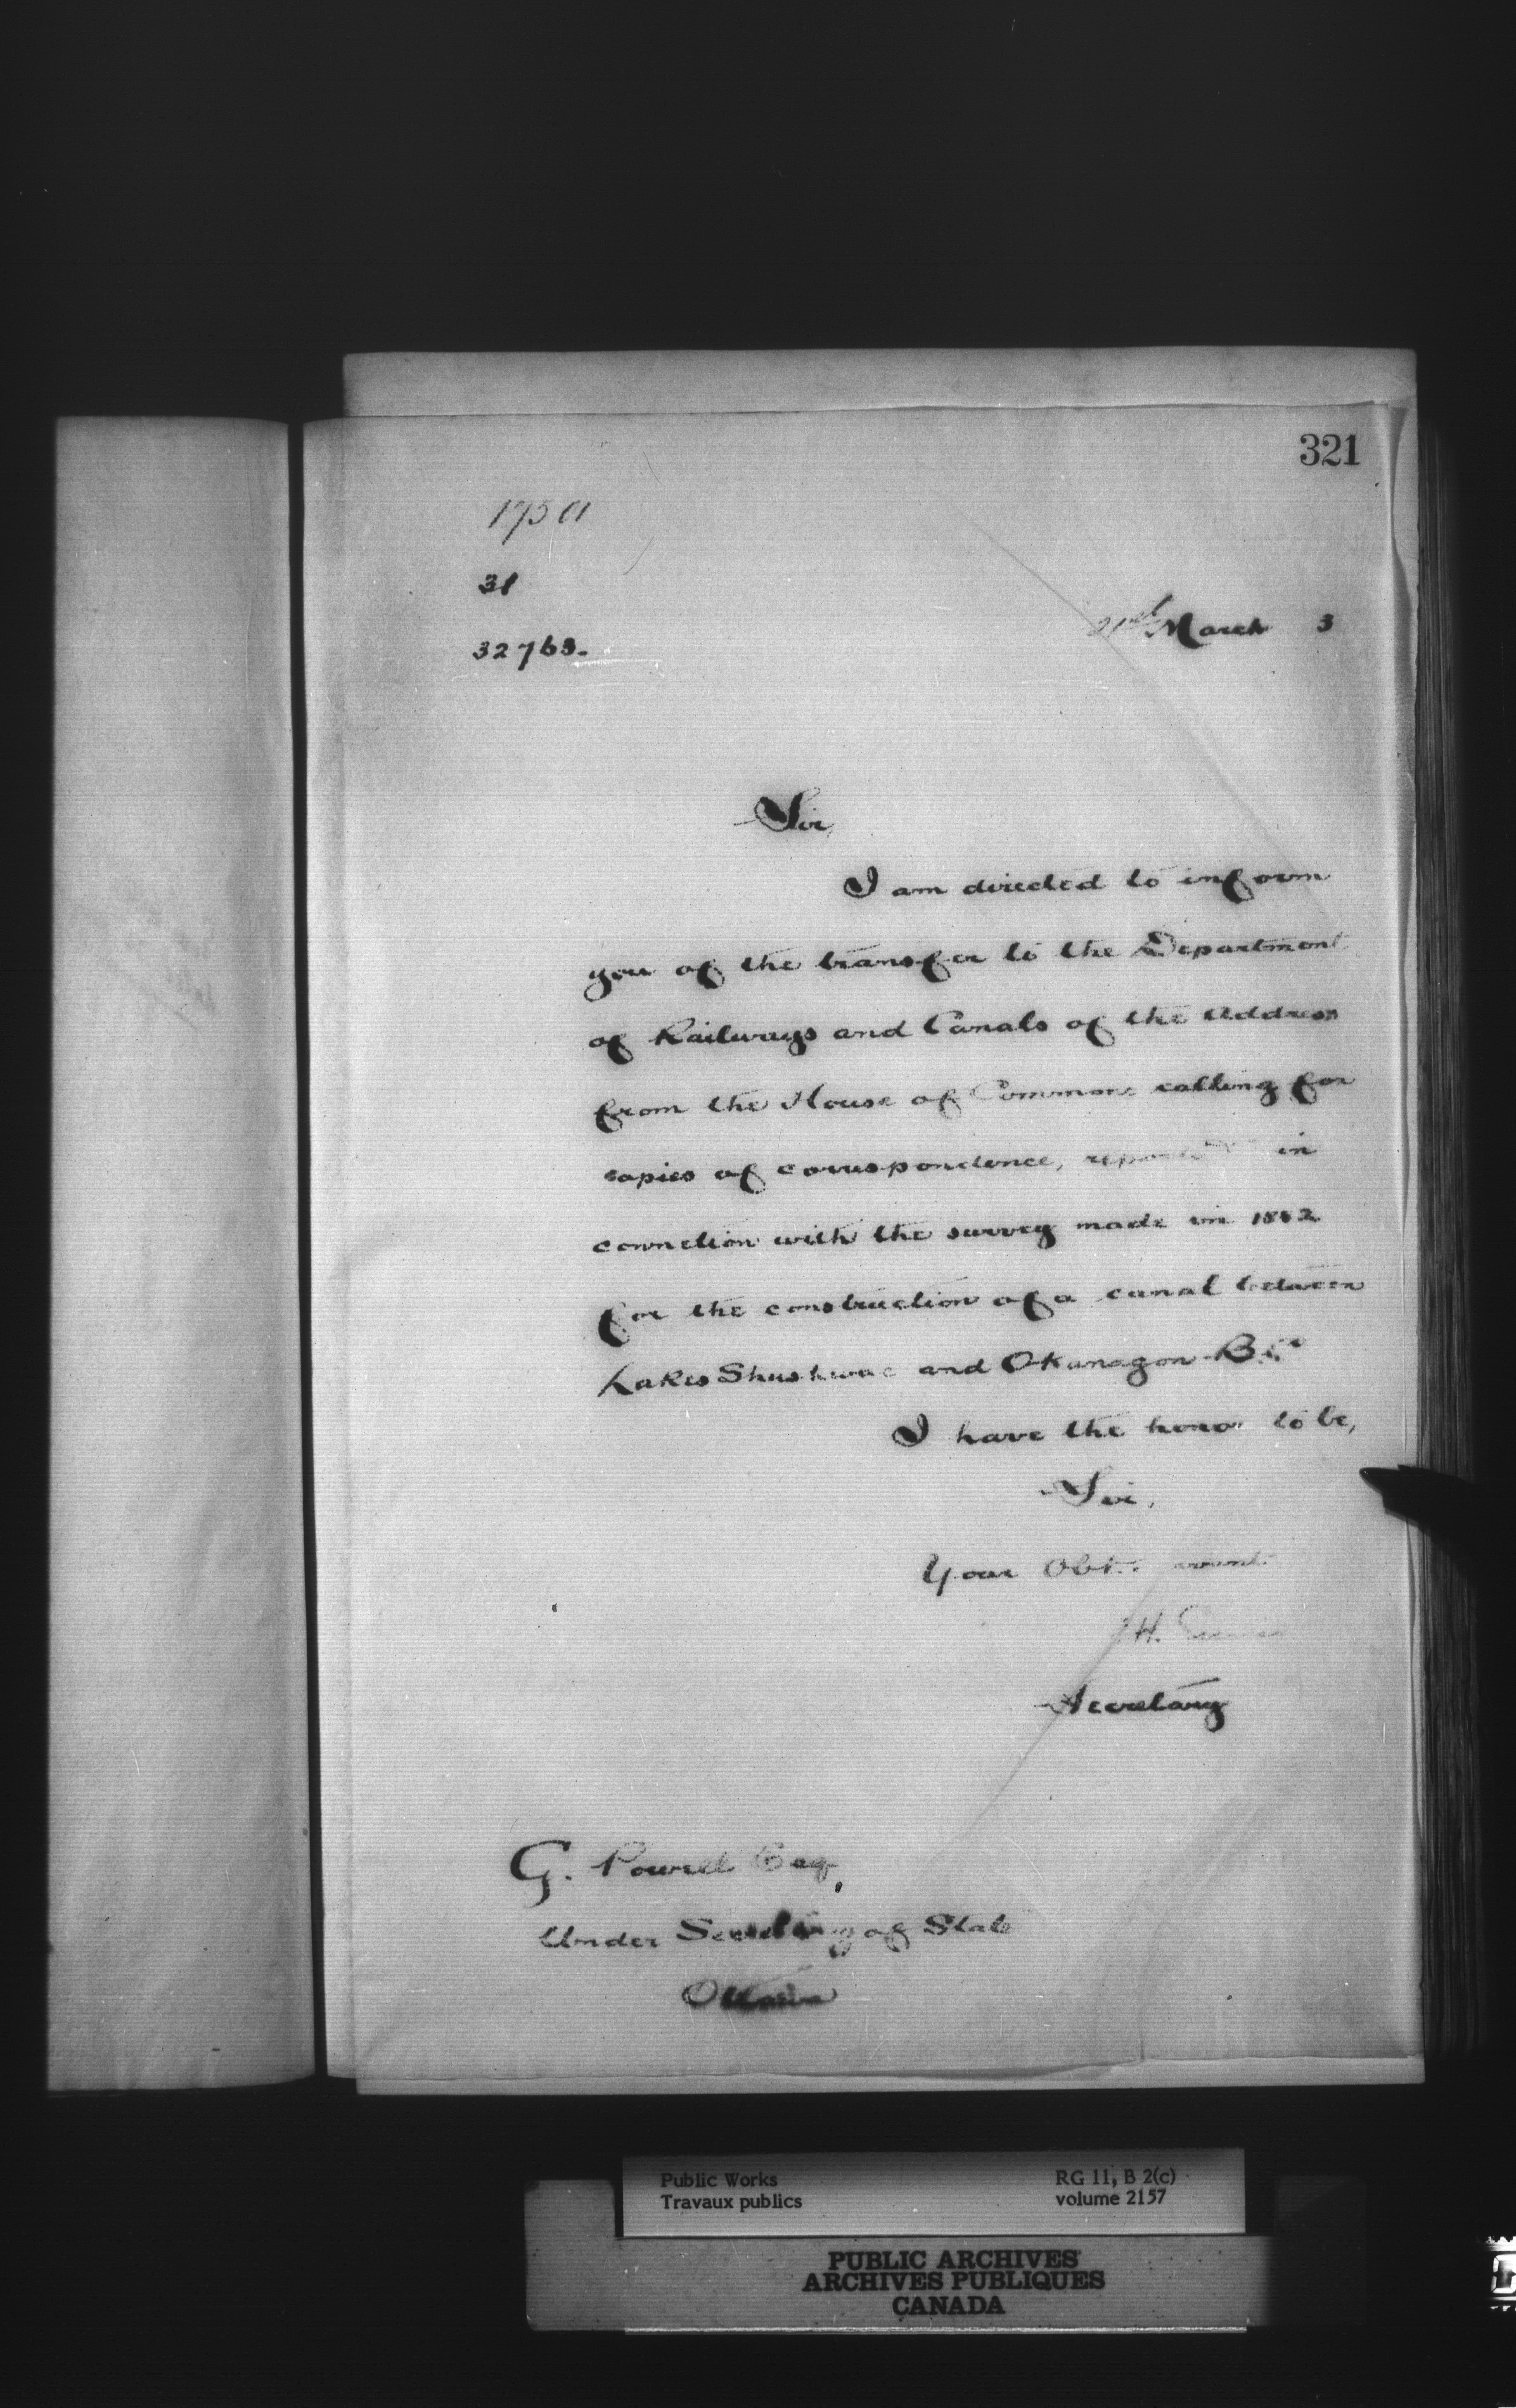 321
17501
31
32763.
21st March 3
Sir,
I am directed to inform
you of the transfer to the Department
of Railways and Canals of the Address
from the House of Commons calling for
copies of correspondence, reports in
connection with the survey made in 1882
for the construction of a canal between
Lakes Shushwac and Okanagon B.C.
I have the honor to be,
Sir,
Your Obt. servant
H.
Secretary
G. Powell Esq,
Under Secretary of State
Ottawa
Public Works
Travaux publics
RG 11, B 2(c)
volume 2157
PUBLIC ARCHIVES
ARCHIVES PUBLIQUES
CANADA